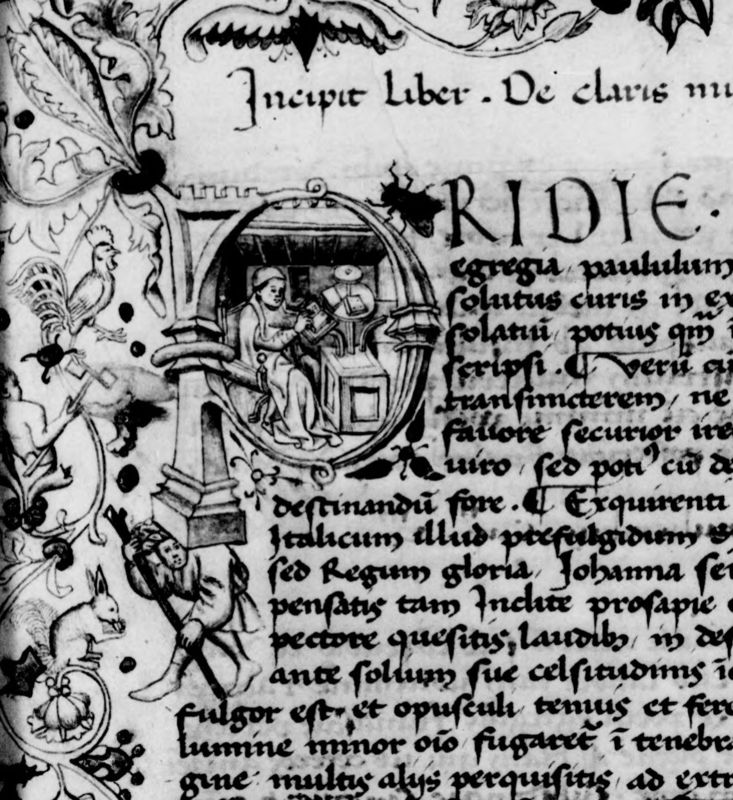 Incipit Liber. De claris mu
PRIDIE.
egregia paululum
solutus curis in ex
solatiū, potius qm̄ i
scripsi. ¶ Verū cū
transmicterem, ne
favore securior ire
viro, sed poti⁹ cū de
destinandū fore. ¶ Exquirenti
Italicum illud prefulgidum s
sed Regum gloria, Johanna ser
pensatis tam Inclite prosapie
pectore quesitis, laudib, in des
ante solium sue celsitudinis
fulgor est, et opusculi tenuis et fere
lumine minor oīo fugaret̄ ī tenebra
gine multis alijs perquisitis, ad extr